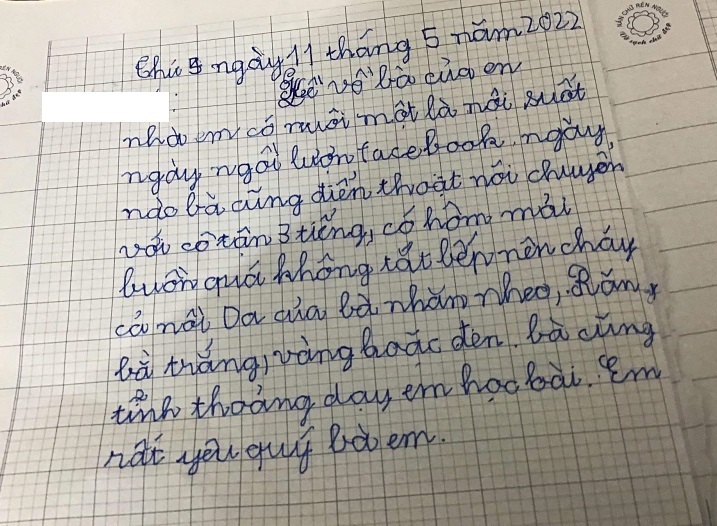 Thứ 5 ngày 11 tháng 5 năm 2022
Kể về bà của en
nhà em có nuôi một là nội suốt
ngày ngồi lượn facebook. ngày
nào bà cũng điển thoạt nói chuyện
với cô tận 3 tiếng, có hôm mải
buôn quá không tắt bếp nên cháy
cả nồi Da của bà nhăn nheo, Răng
bà trắng, vàng hoặc đen. bà cũng
tỉnh thoảng dạy em học bài. Em
rất yêu quý bà em.
NÉN CHỮ RÈN NGƯỜI